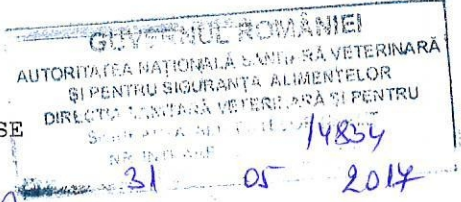 GUVERNUL ROMÂNIEI
AUTORITATEA NAȚIONALĂ SANITARĂ VETERINARĂ
ȘI PENTRU SIGURANȚA ALIMENTELOR
DIRECȚIA SANITARĂ VETERINARĂ ȘI PENTRU
SE
14854
31 05 2017